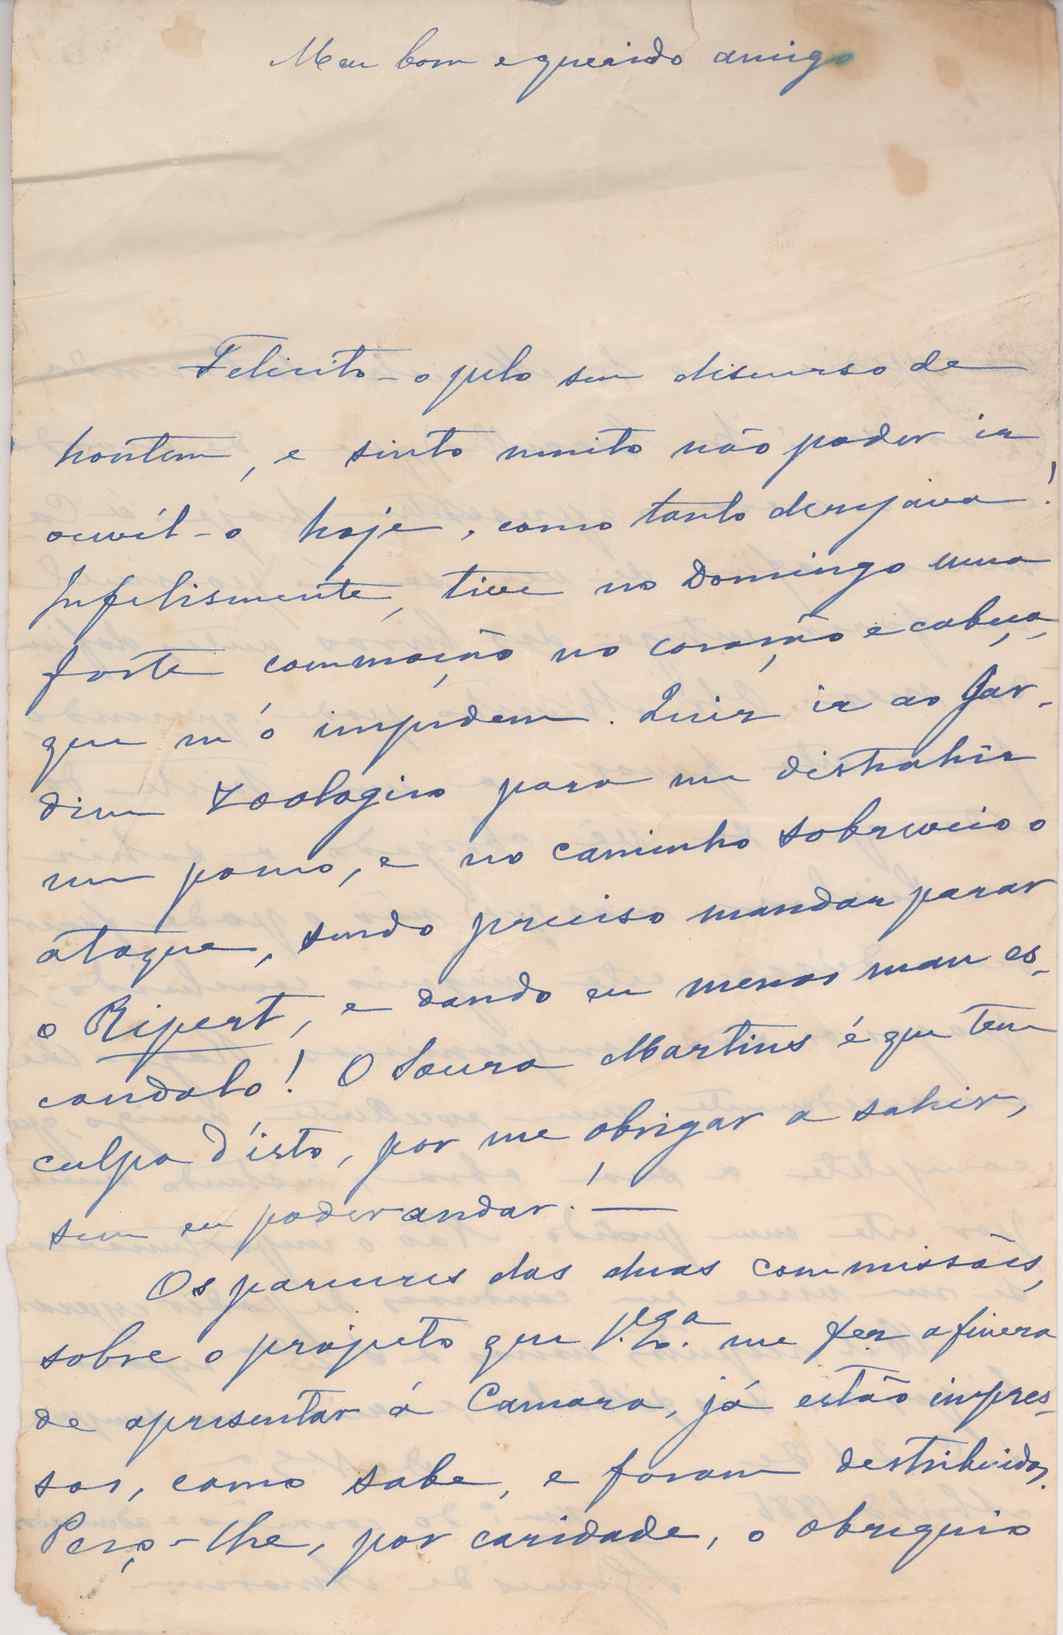 Meu bom e querido amigo
Felicito-o pelo seu discurso de
hontem, e sinto muito não poder ir
ouvil-o hoje, como tanto desejava!
Infelismente, tive no Domingo uma
forte commoção no coração e cabeça,
que m'o impedem. Quiz ir ao Jar-
dim Zoologico para me distrahir
um pouco, e no caminho sobreveio o
ataque, sendo preciso mandar parar
o Ripert, e dando eu menos mau es-
candalo! O Souza Martins é que tem
culpa d'isto, por me obrigar a sahir,
sem eu poder andar! —
Os pareceres das duas commissões,
sobre o projecto que me fez a fineza
de apresentar á Camara, já estão impres-
sos, como sabe, e foram destribuidos.
Peço-lhe, por caridade, o obsequio